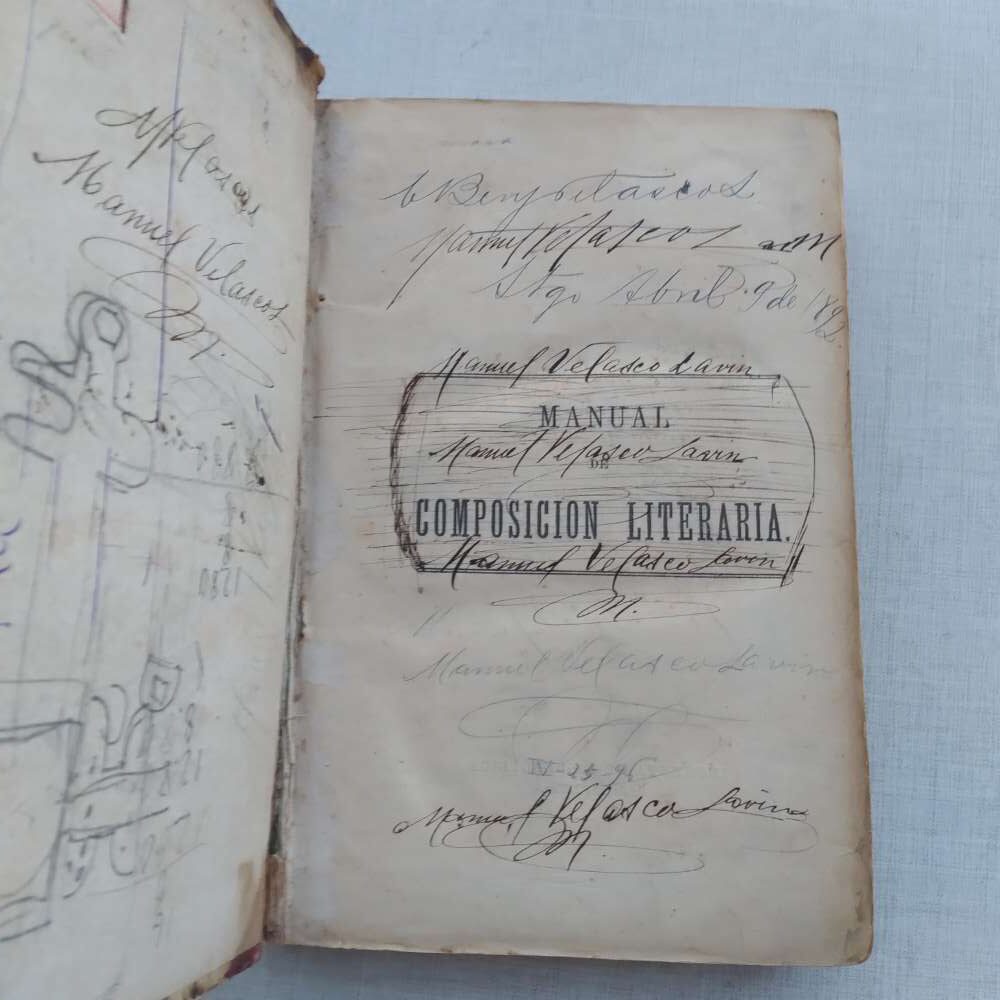 Manuel Velascos
M.
1280
Benj Velascos L
Manuel Velascos M
Stgo Abril 9 de 1892.
Manuel Velasco Lavin
MANUAL
Manuel Velasco Lavin
DE
COMPOSICION LITERARIA.
Manuel Velasco Lavin
M.
Manuel Velasco Lavin
IV-25-96
Manuel Velasco Lavin
M